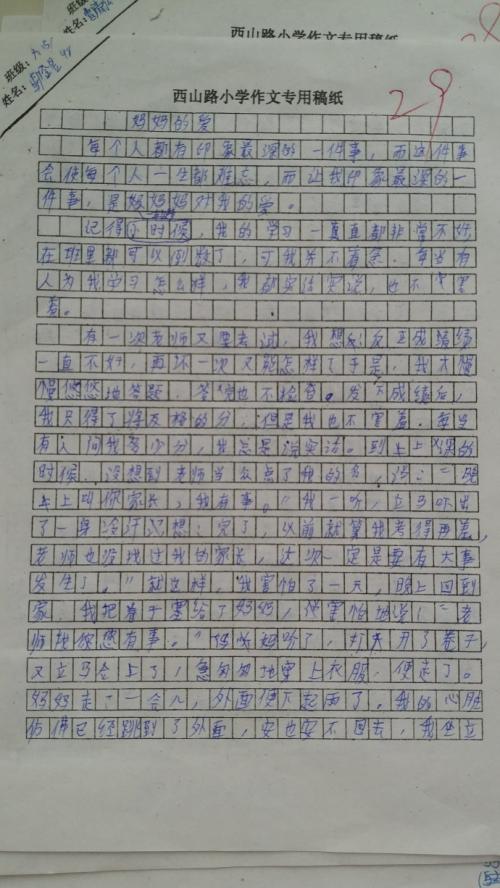 西山路小学作文专用稿纸
班级:
姓名:
西山路小学作文专用稿纸
29
班级:六
姓名:
妈妈的爱
每个人都有印象最深的一件事,而这件事
会使每个人一生都难忘,而让我印象最深的一
件事,是妈妈对我的爱。
记得小时候,我的学习一直直都非常不好,
在班里都可以倒数了,可我并不着急。每当有
人问我学习怎么样,我都实话实说,也不害
羞。
有一次老师又要考试,我想:反正成绩
一直不好,再坏一次又能怎样了于是,我才慢
慢悠悠地答题,答完也不检查。发下成绩后,
我只得了将及格的分,但是我也不害羞。每当
有人问我多少分,我总是说实话。到上上课的
时候,没想到老师当众点了我的名,说:“晚
上叫你家长,我有事。”我一听,立马吓出
了一身冷汗,想:完了,以前就算我考得再差,
老师也没找过我的家长,这次一定是要有大事
发生了。”就这样,我害怕了一天,晚上回到
家,我把卷子塞给了妈妈,害怕地说:“老
师找你您有事。”妈妈听了,打开了卷子,
又立马合上了,急匆匆地穿上衣服,便走了。
妈妈走了一会儿,外面便下起雨了。我的心脏
仿佛已经跳到了外面,安也安不回去,我坐立